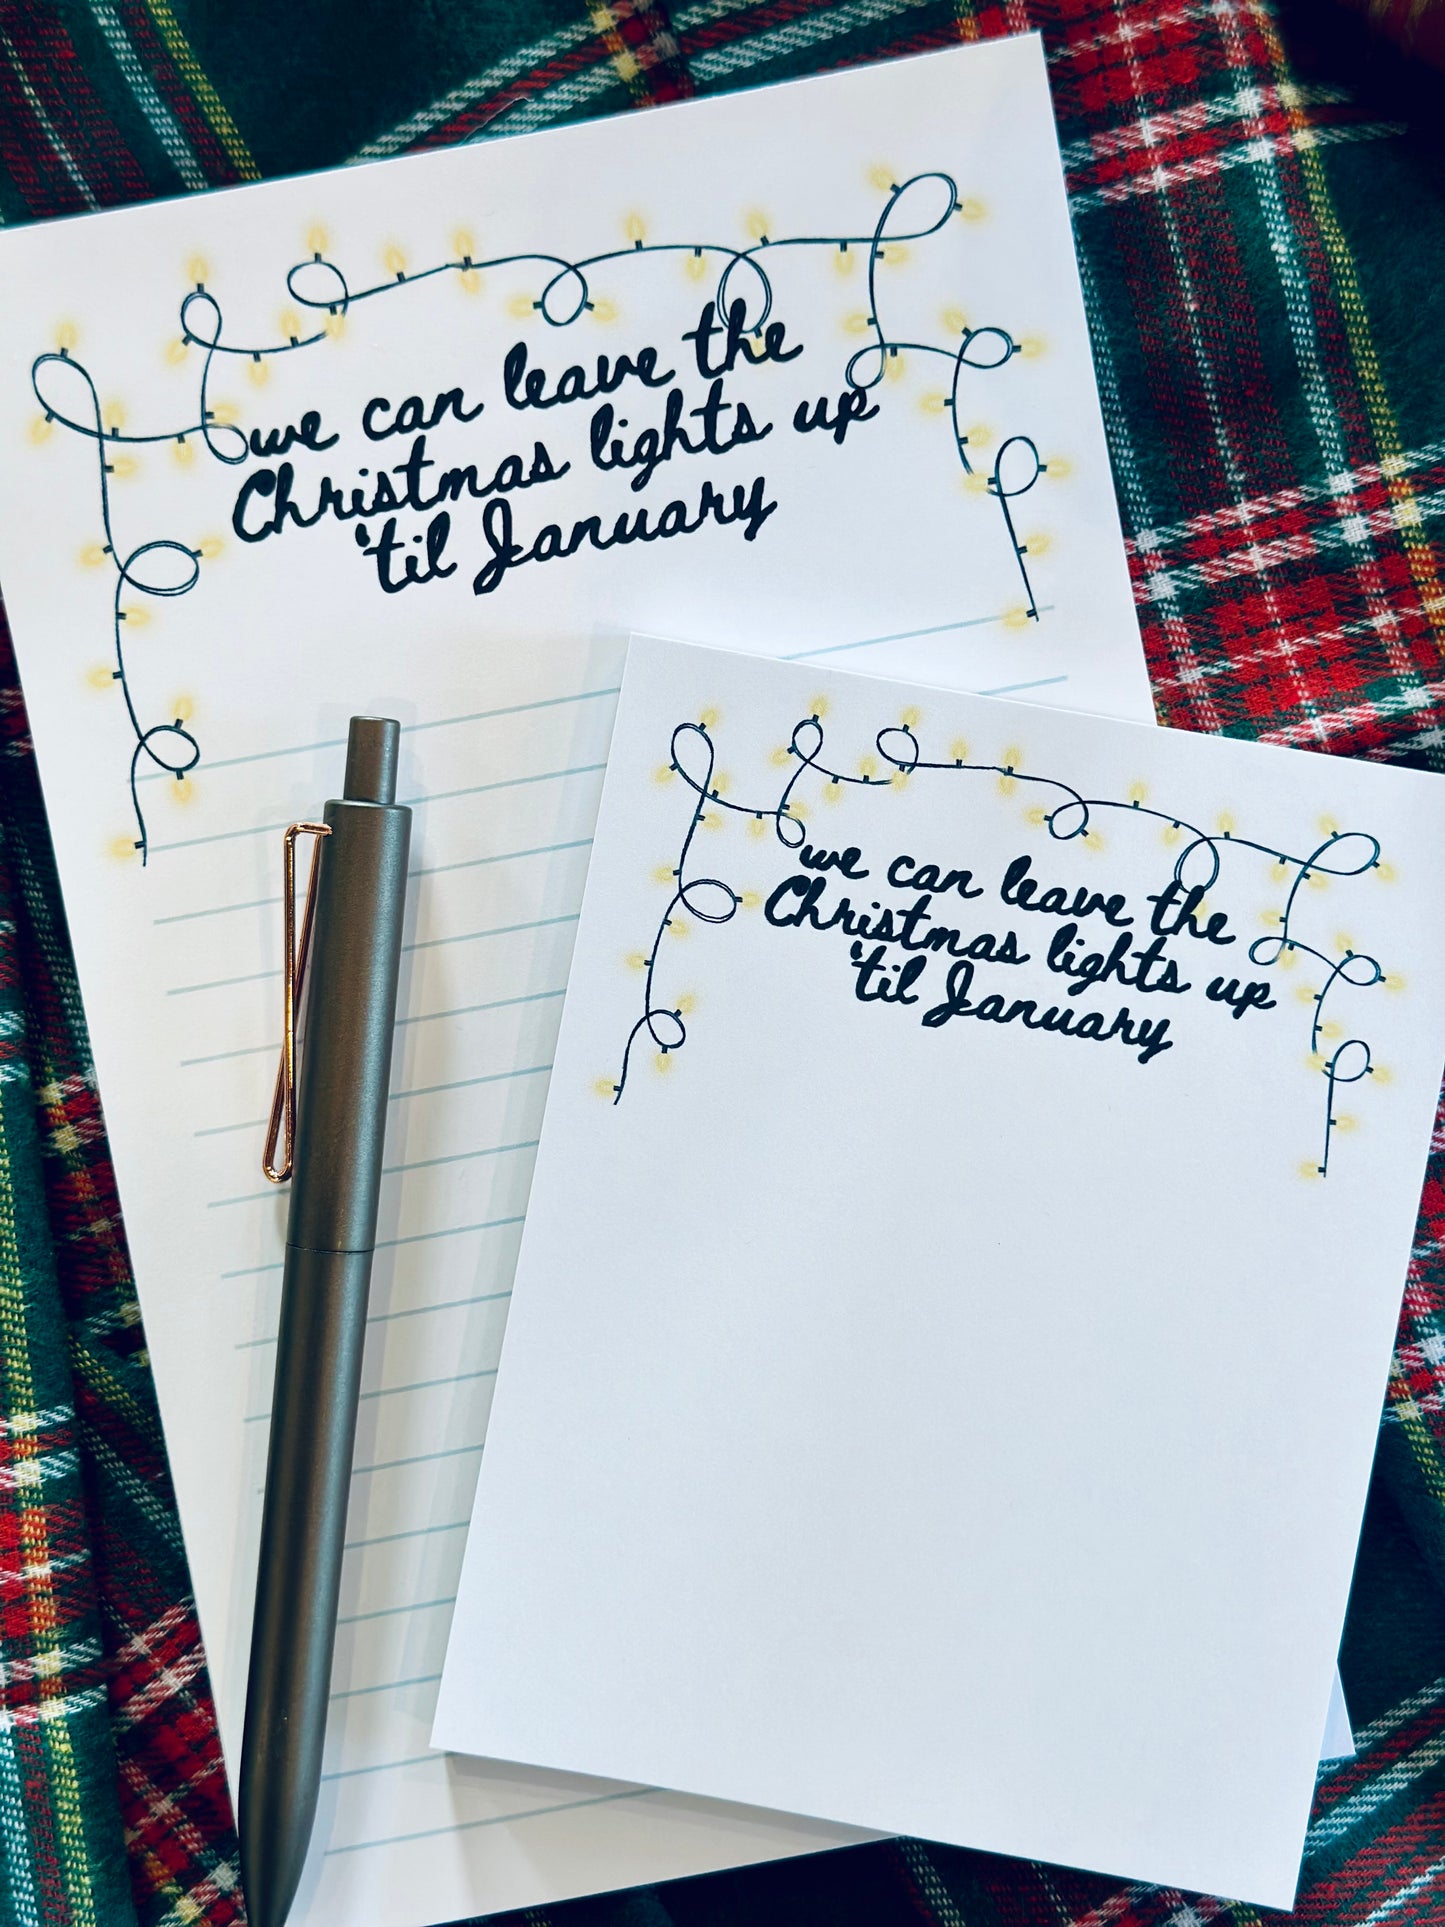 we can leave the
Christmas lights up
'til January
we can leave the
Christmas lights up
'til January